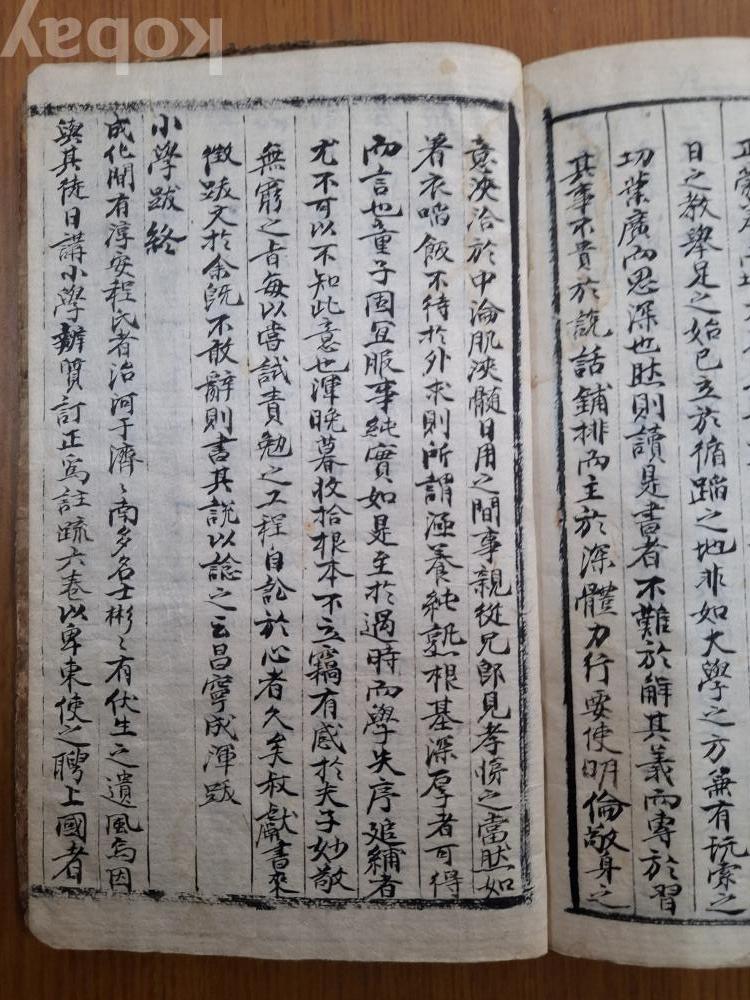 日之教擧足之始已立於循蹈之地非如大學之方無有玩索之
功業廣而思深也然則讀是書者不難於解其義而專於習
其事不貴於說話鋪排而主於深體力行要使明倫敬身之
意浹洽於中淪肌浹髓日用之間事親從兄卽見孝悌之當然如
着衣喫飯不待於外求則所謂涵養純熟根基深厚者可得
而言也童子固宜服事純實如是至於過時而學失序追補者
尤不可以不知此意也渾晩暮收拾根本不立竊有感於夫子妙敬
無窮之旨每以嘗試責勉之工程自訟於心者久矣叔獻書來
徵跋文於余旣不敢辭則書其說以諗之云昌寧成渾跋
小學跋終
成化間有淳安程氏者治河于濟〻南多名士彬〻有伏生之遺風焉因
與其徒日講小學辨質訂正爲註疏六卷以卑東使之聘上國者
kobay